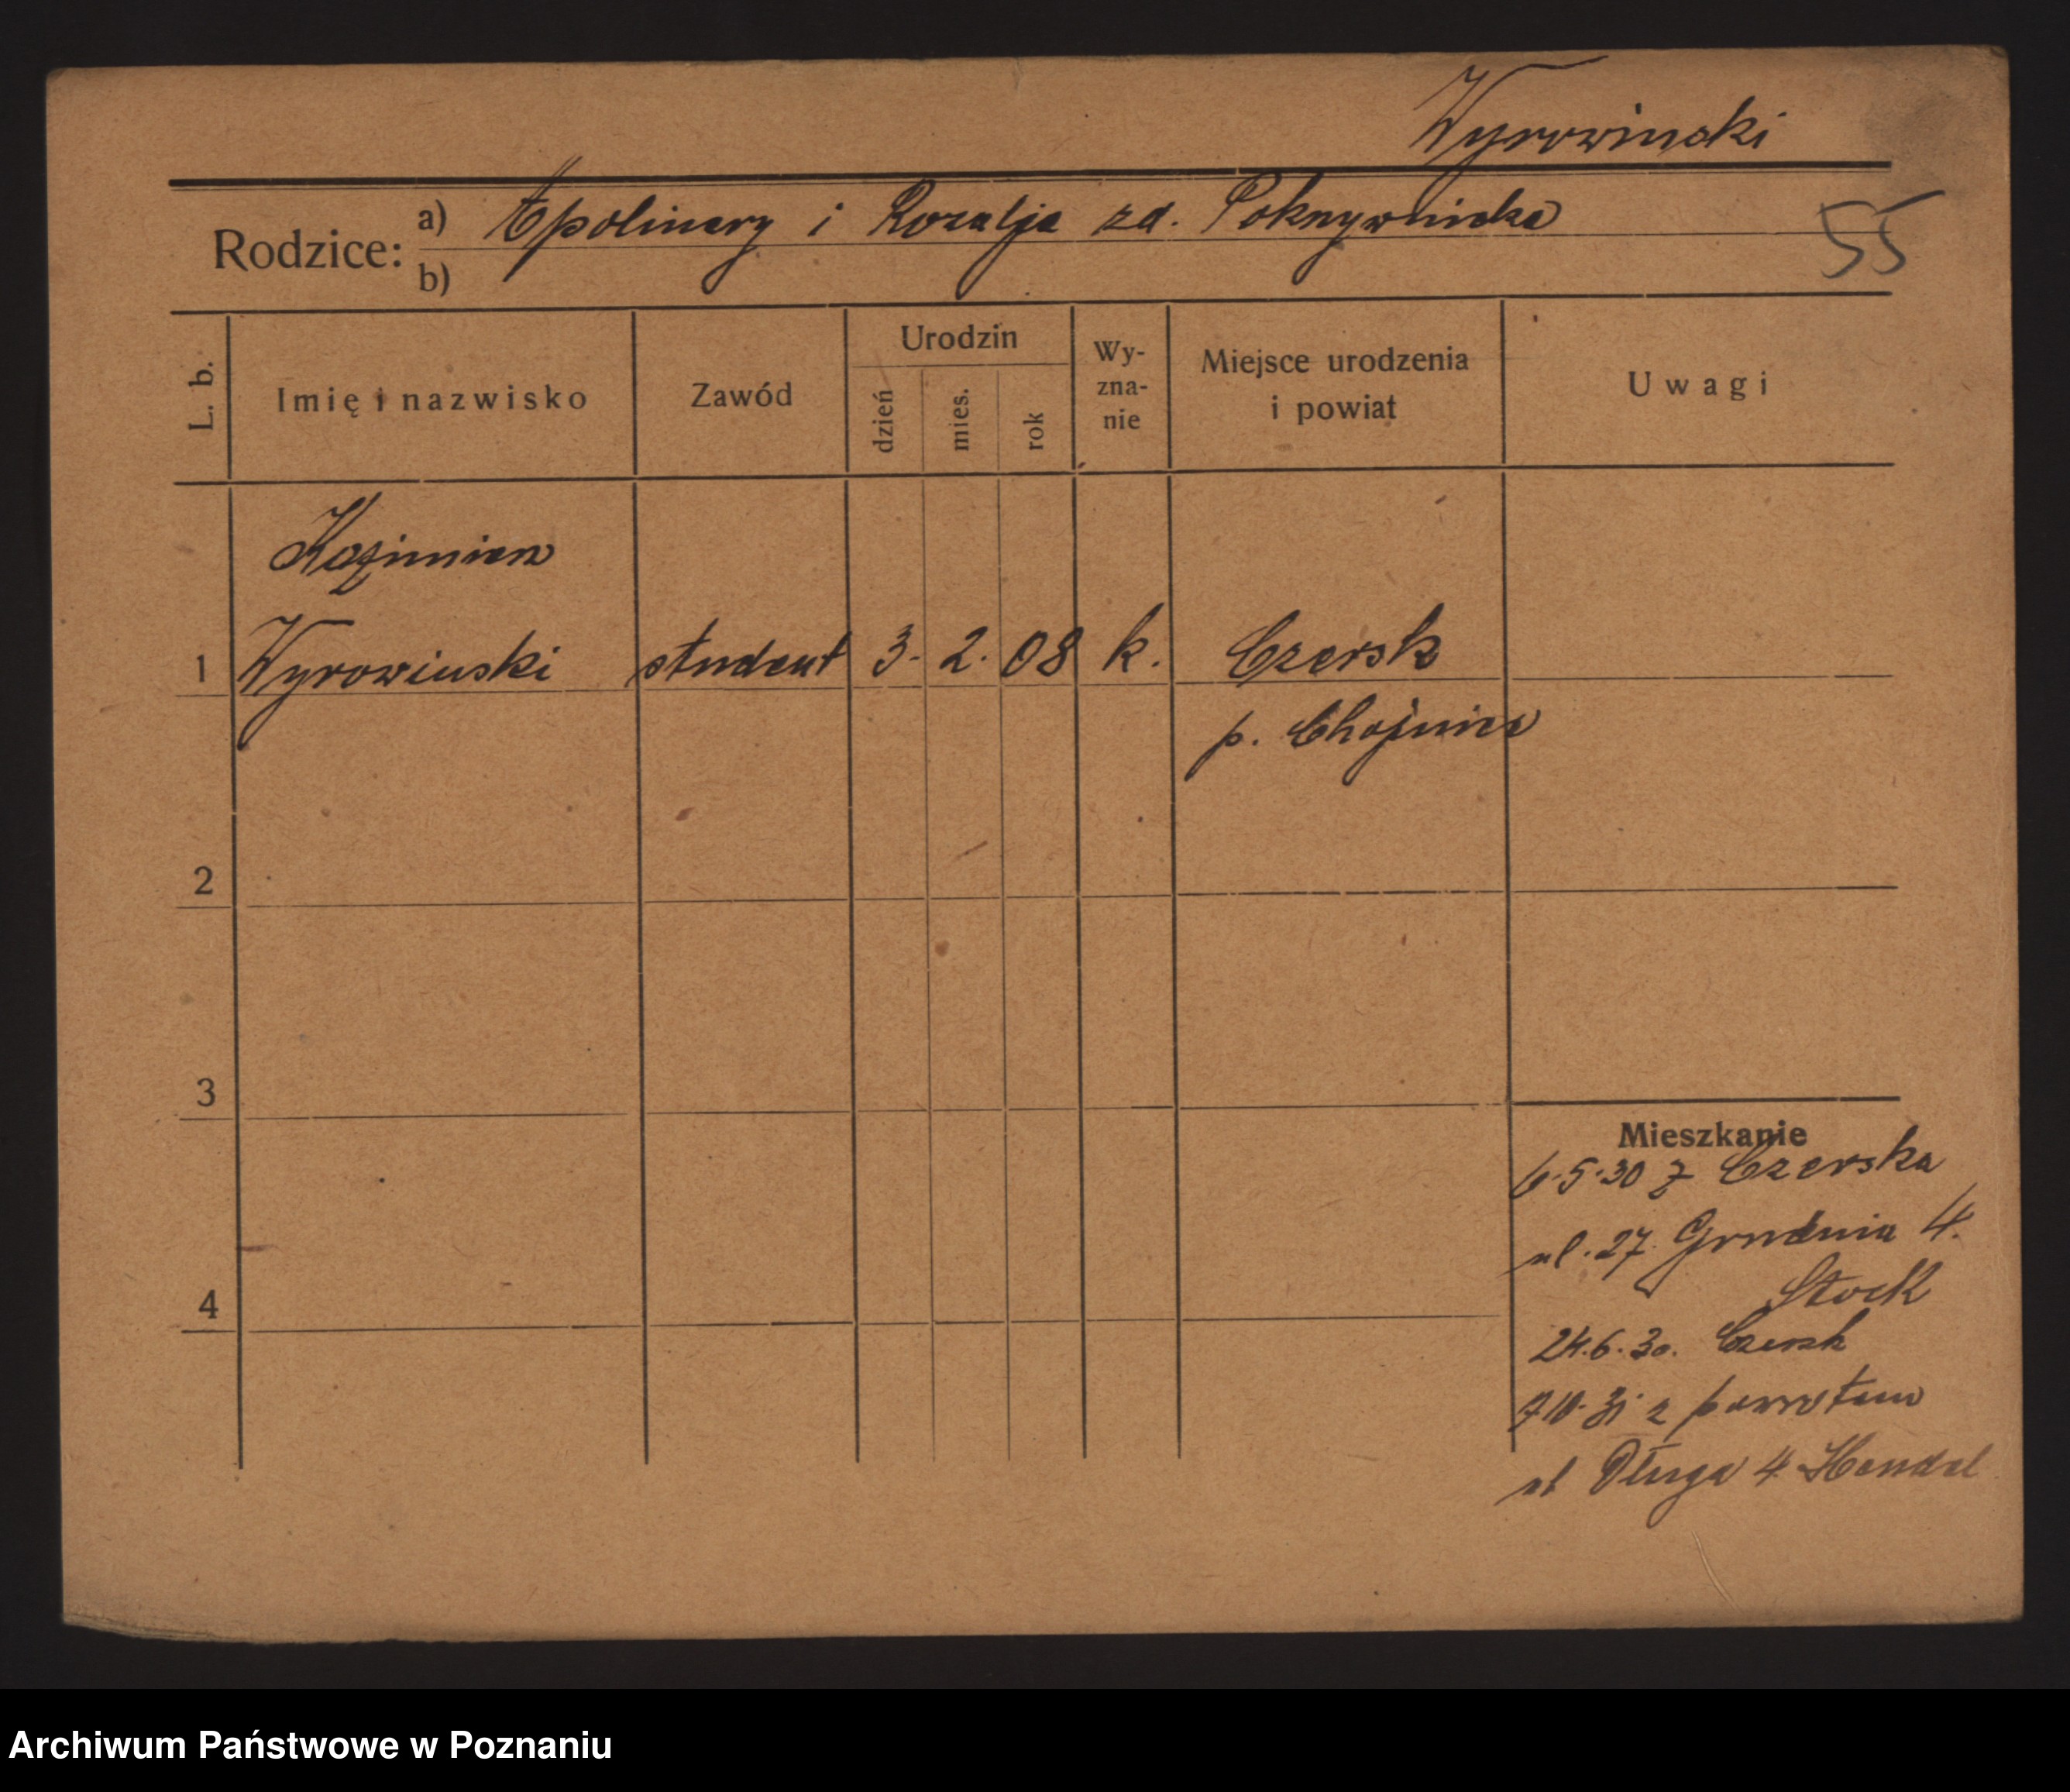 Wyrowinski
Rodzice: a) Apolinary i Rozalja zd. Pokrzywnicka
b)
55
L. b.
Imię i nazwisko
Zawód
Urodzin
dzień
mies.
rok
Wy-
zna-
nie
Miejsce urodzenia
i powiat
Uwagi
Kazimierz
1 Wyrowinski student 3. 2. 08 k. Czersk
p. Chojnice
2
3
4
Mieszkanie
6.5.30 z Czerska
ul. 27 Grudnia 4.
Stock
24.6.30. Czersk
7 10. 31 z powrotem
ul Długa 4 Handel
Archiwum Państwowe w Poznaniu